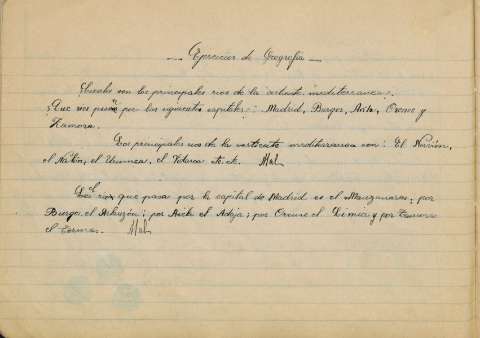 Ejercicios de Geografía
¿Cuales son los principales rios de la vertiente mediterranea.
¿Que rios pasan por las siguientes capitales: Madrid, Burgos, Avila, Orense y
Zamora.
Los principales rios de la vertiente mediterranea son: El Nervión,
el Nalón, el Urumea, el Vidasoa Mal
El rio que pasa por la capital de Madrid es el Manzanares; por
Burgos el Arlanzón; por Avila el Adaja; por Orense el Limia y por Zamora
el Tormes. Mal